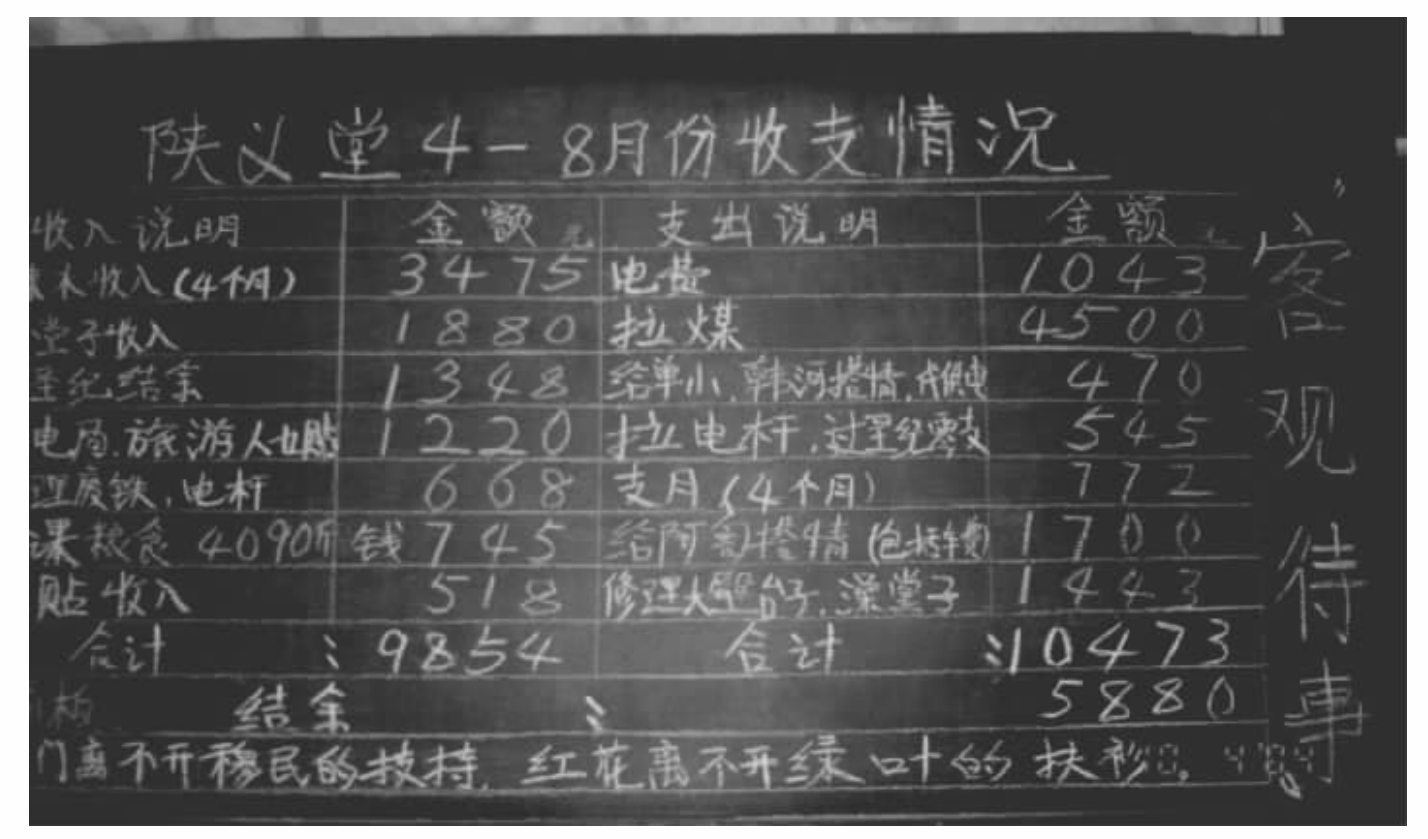 陕义堂4-8月份收支情况
收入说明 金额元 支出说明 金额元
水收入(4个月) 3475 电费 1043
堂子收入 1880 拉煤 4500
圣纪结余 1348 给单小、韩河搭情, 470
电局.旅游人 贴 1220 拉电杆.过圣纪零支 545
废铁,电杆 668 支月(4个月) 772
粮食 4090斤 钱 745 给阿訇搭情(包括车费) 1700
贴收入 518 修理大 台子,澡堂子 1443
合计: 9854 合计:10473
结余: 5880
门离不开移民的技持,红花离不开绿叶的扶衫。
客观待事